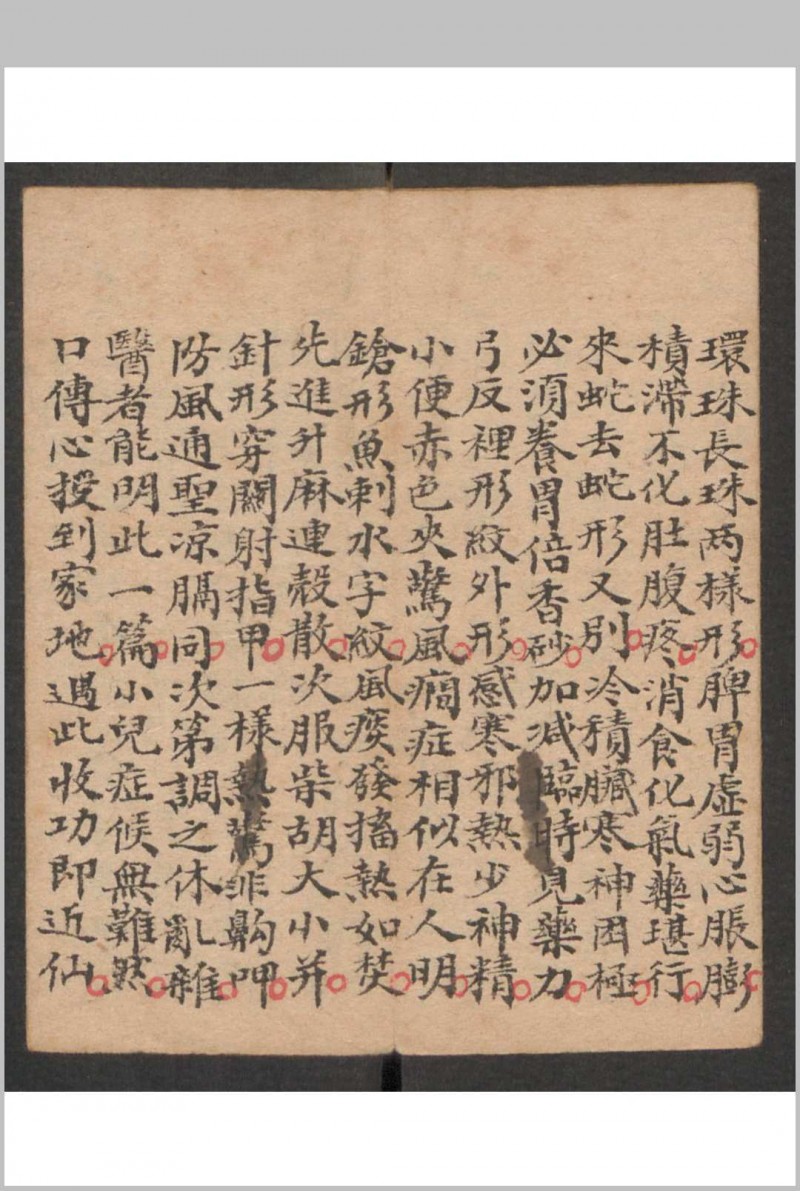 環珠長珠两樣形脾胃虚弱心脹膨
積滯不化肚腹疼消食化氣藥堪行
來蛇去蛇形又別冷積臓寒神困極
必須養胃倍香砂加减臨時見藥力
弓反裡形紋外形感寒邪熱少神精
小便赤色夾驚風癎症相似在人明
鎗形魚刺水字紋風痰發搐熱如焚
先進升麻連殻散次服柴胡大小并
針形穿關射指甲一樣熱驚非齁呷
防風通聖凉膈同次第調之休亂雜
醫者能明此一篇小兒症候無難然
口傳心授到家地遇此收功即近仙